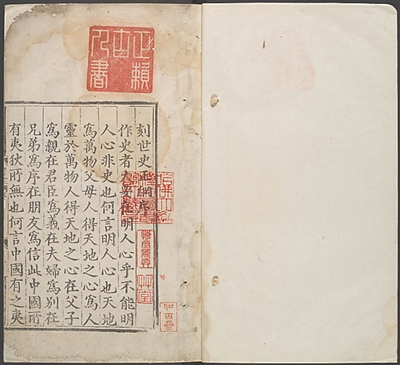 正賴古人書
刻世史正綱序
作史者大要在明人心乎不能明
人心非史也何言明人心也天地
爲萬物父母人得天地之心爲人
靈於萬物人得天地之心在父子
爲親在君臣爲義在夫婦爲別在
兄弟爲序在朋友爲信此中國所
有夷狄所無也何言中國有之夷